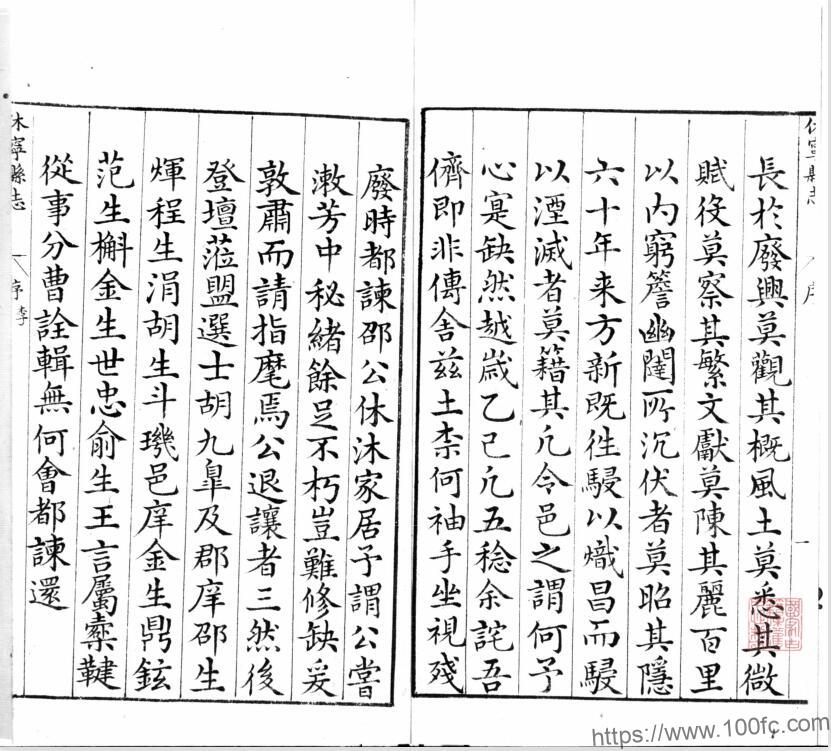 長於廢興莫觀其概風土莫悉其微
賦役莫察其繁文獻莫陳其麗百里
以內窮簷幽闥所沉伏者莫昭其隱
六十年来方新既徃駸以熾昌而駸
以湮滅者莫籍其凢今邑之謂何予
心寔缺然越歲乙巳凢五稔余詫吾
儕即非傳舍茲土柰何袖手坐視殘
廢時都諫邵公休沐家居予謂公嘗
漱芳中秘緒餘足不朽豈難修缺爰
敦肅而請指麾焉公退讓者三然後
登壇蒞盟選士胡九臯及郡庠邵生
煇程生涓胡生斗璣邑庠金生鼎鉉
范生檞金生世忠俞生王言屬櫜鞬
從事分曹詮輯無何會都諫還
休寧縣志
序
李
休寧縣志
序
一
https://www.100fc.com